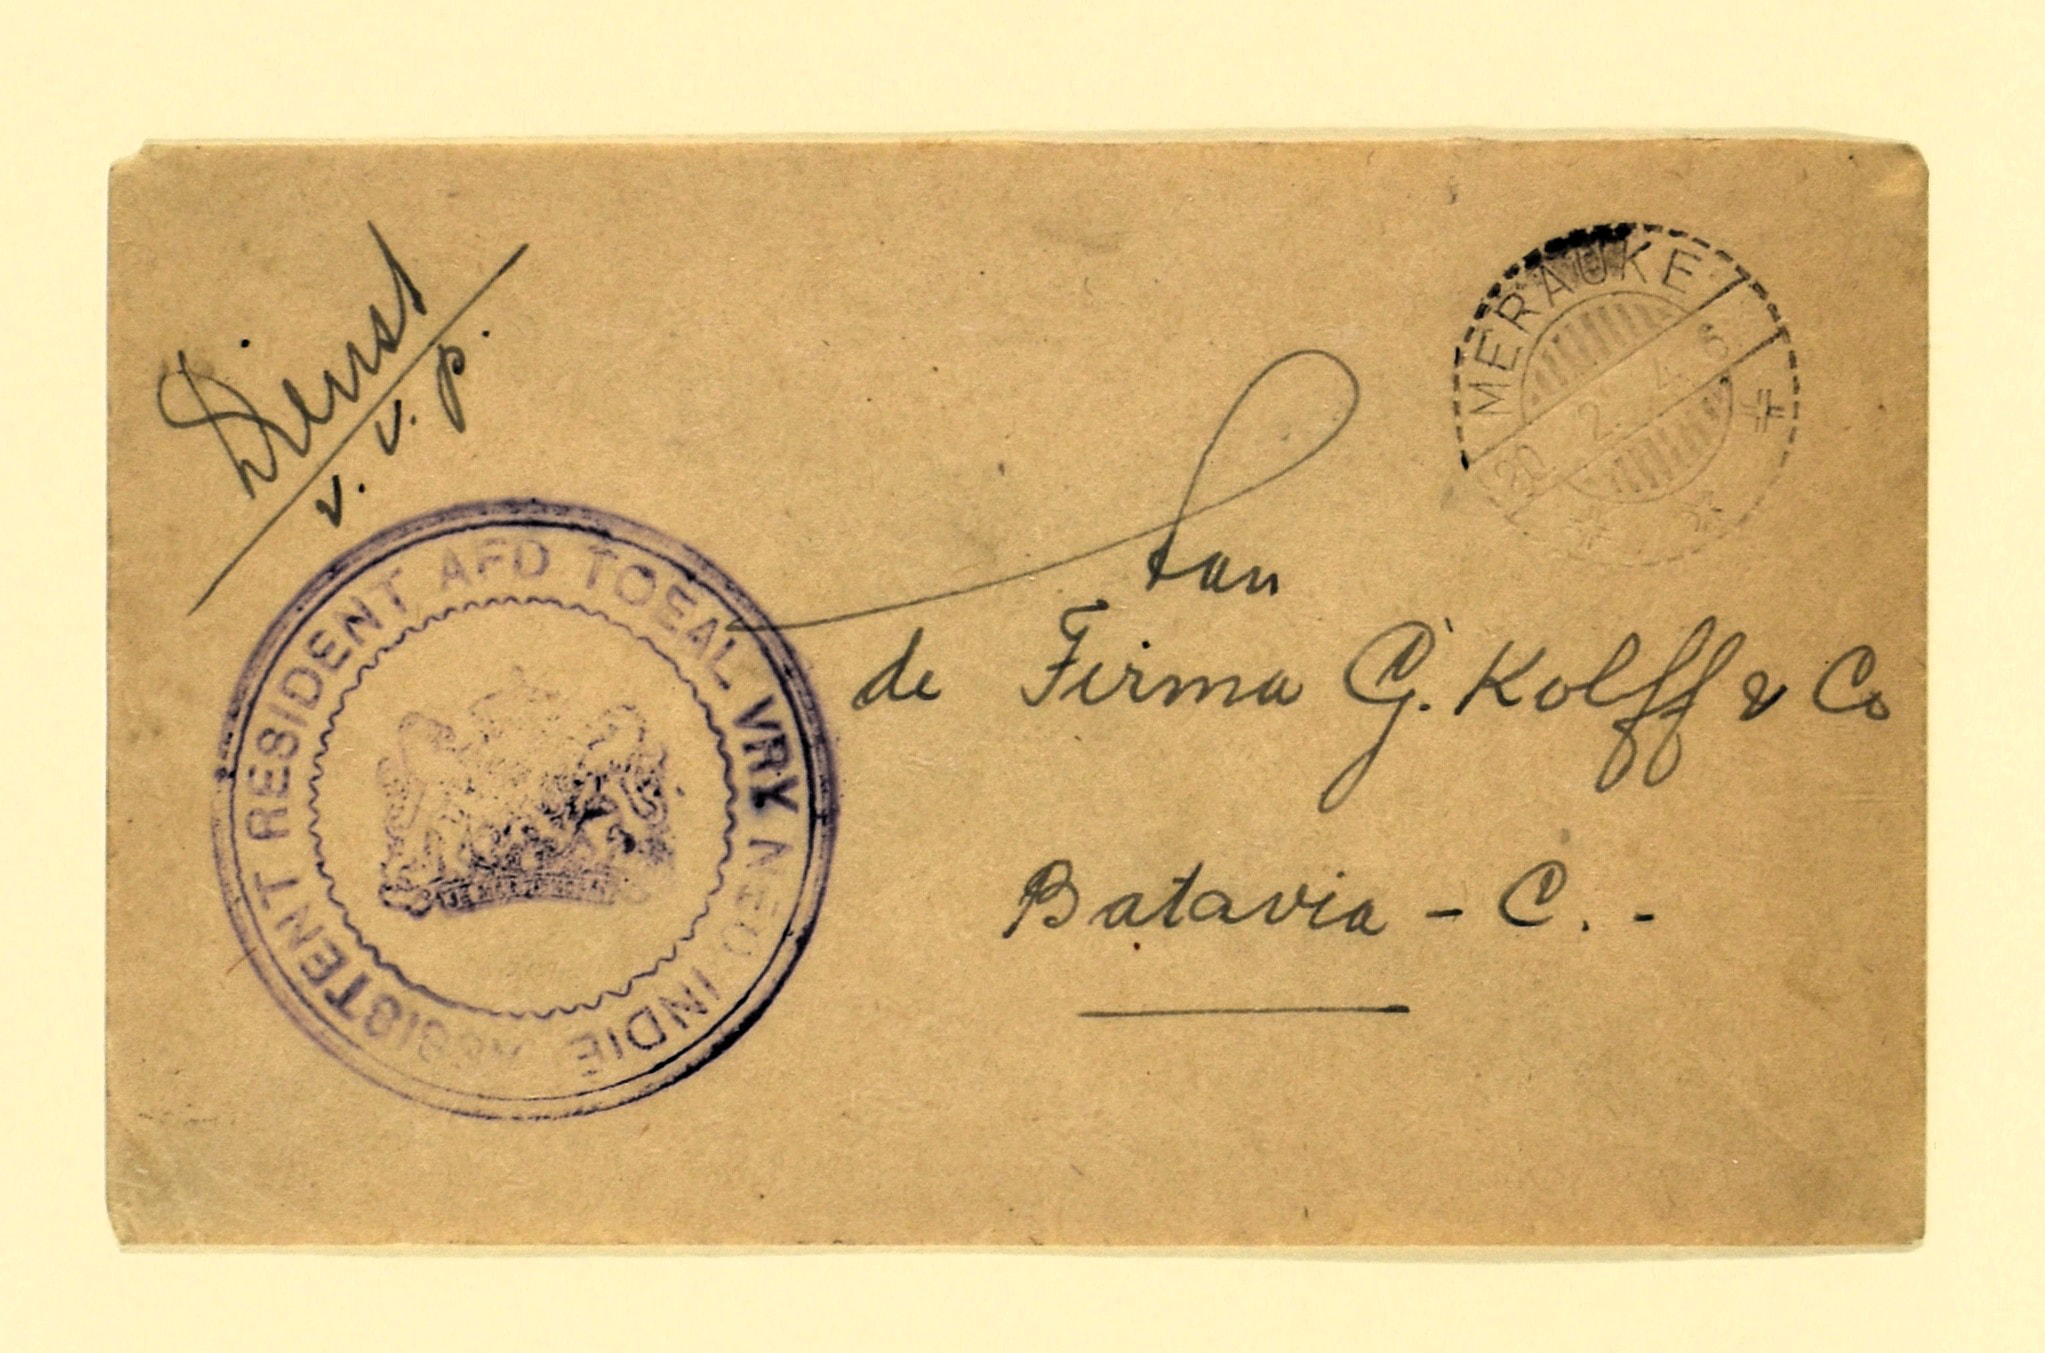 Dienst
v. v. p.
MERAUKE
20. 2. 4. 6
Aan
de Firma G. Kolff & Co
Batavia - C. -
ASSISTENT RESIDENT AFD TOEAL VRY NED INDIE